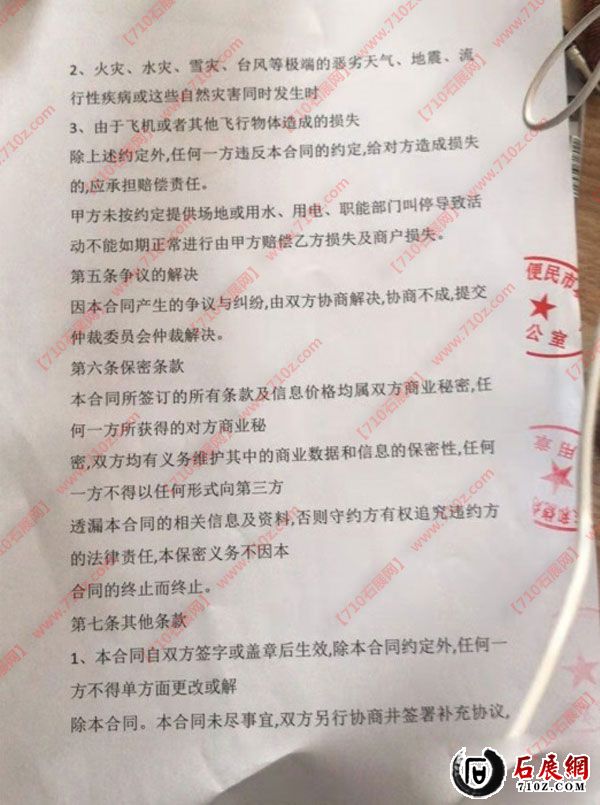 2、火灾、水灾、雪灾、台风等极端的恶劣天气、地震、流
行性疾病或这些自然灾害同时发生时
3、由于飞机或者其他飞行物体造成的损失
除上述约定外,任何一方违反本合同的约定,给对方造成损失
的,应承担赔偿责任。
甲方未按约定提供场地或用水、用电、职能部门叫停导致活
动不能如期正常进行由甲方赔偿乙方损失及商户损失。
第五条争议的解决
因本合同产生的争议与纠纷,由双方协商解决,协商不成,提交
仲裁委员会仲裁解决。
第六条保密条款
本合同所签订的所有条款及信息价格均属双方商业秘密,任
何一方所获得的对方商业秘
密,双方均有义务维护其中的商业数据和信息的保密性,任何
一方不得以任何形式向第三方
透漏本合同的相关信息及资料,否则守约方有权追究违约方
的法律责任,本保密义务不因本
合同的终止而终止。
第七条其他条款
1、本合同自双方签字或盖章后生效,除本合同约定外,任何一
方不得单方面更改或解
除本合同。本合同未尽事宜,双方另行协商并签署补充协议,
便民市
公室
用章
【710石展网】
www.710z.com
石展網
710Z.COM